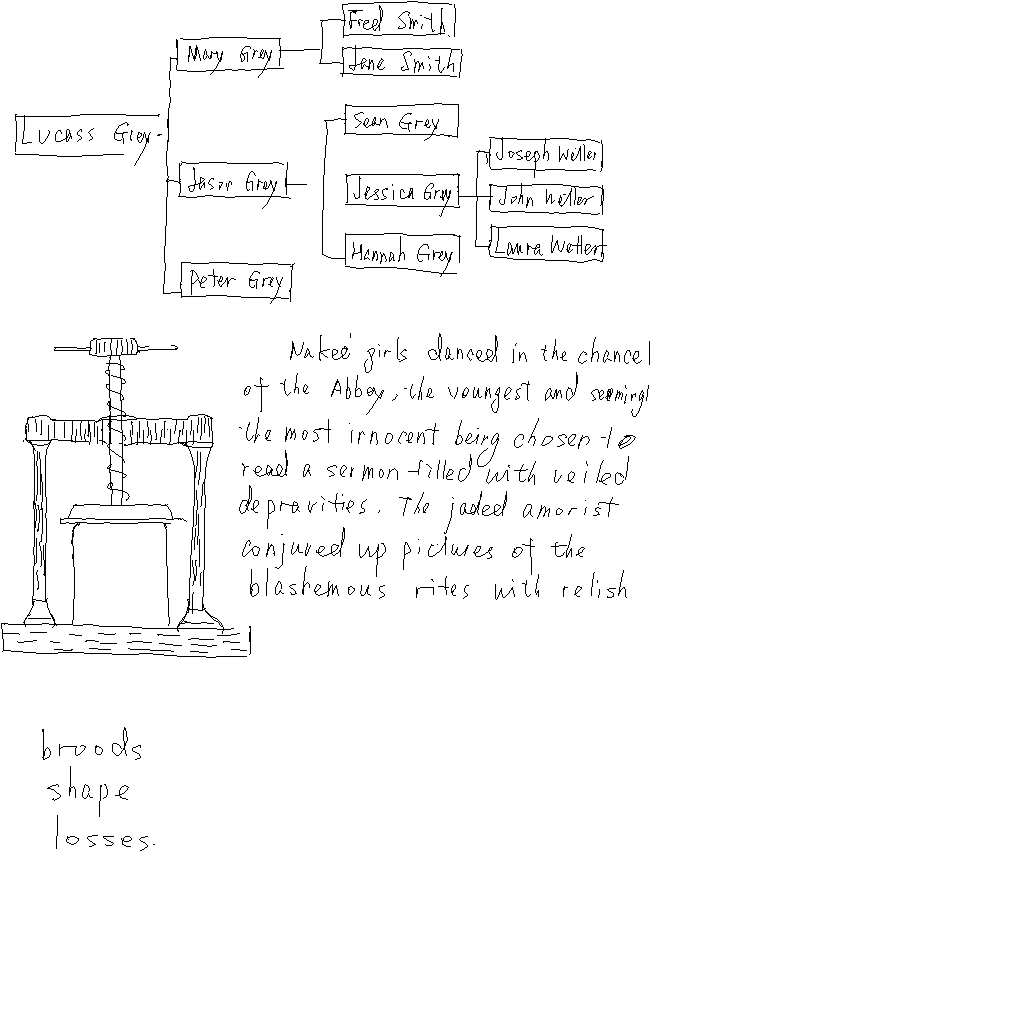 Fred Smith
Mary Grey
Jane Smith
Lucass Grey
Sean Grey
Joseph Weller
Jason Grey
Jessica Grey
John Weller
Hannah Grey
Laura Wellert
Peter Grey
Naked girls danced in the chancel
of the Abbey, the youngest and seemingl
the most innocent being chosen to
read a sermon filled with veiled
depravities. The jaded amorist
conjured up pictures of the
blashemous rites with relish
broods
shape
losses.